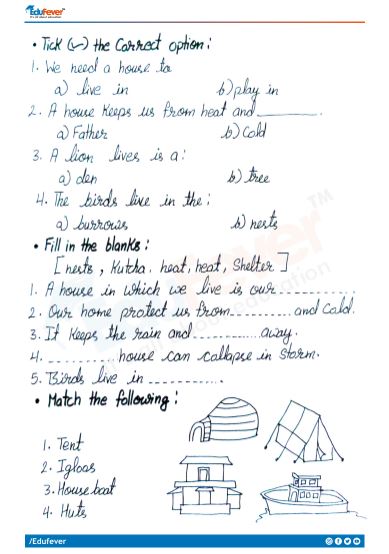 EduFever
• Tick (✓) the Correct option:
1. We need a house to
a) live in b) play in
2. A house keeps us from heat and ________.
a) Father b) Cold
3. A lion lives is a:
a) den b) tree
4. The birds live in the:
a) burrows b) nests
• Fill in the blanks:
[nests, Kutcha, heat, heat, Shelter]
1. A house in which we live is our ------------
2. Our home protect us from--------- and Cold.
3. It Keeps the rain and ---------- away.
4. ---------- house can collapse in storm.
5. Birds live in ----------.
• Match the following:
1. Tent
2. Igloos
3. House boat
4. Huts
/Edufever